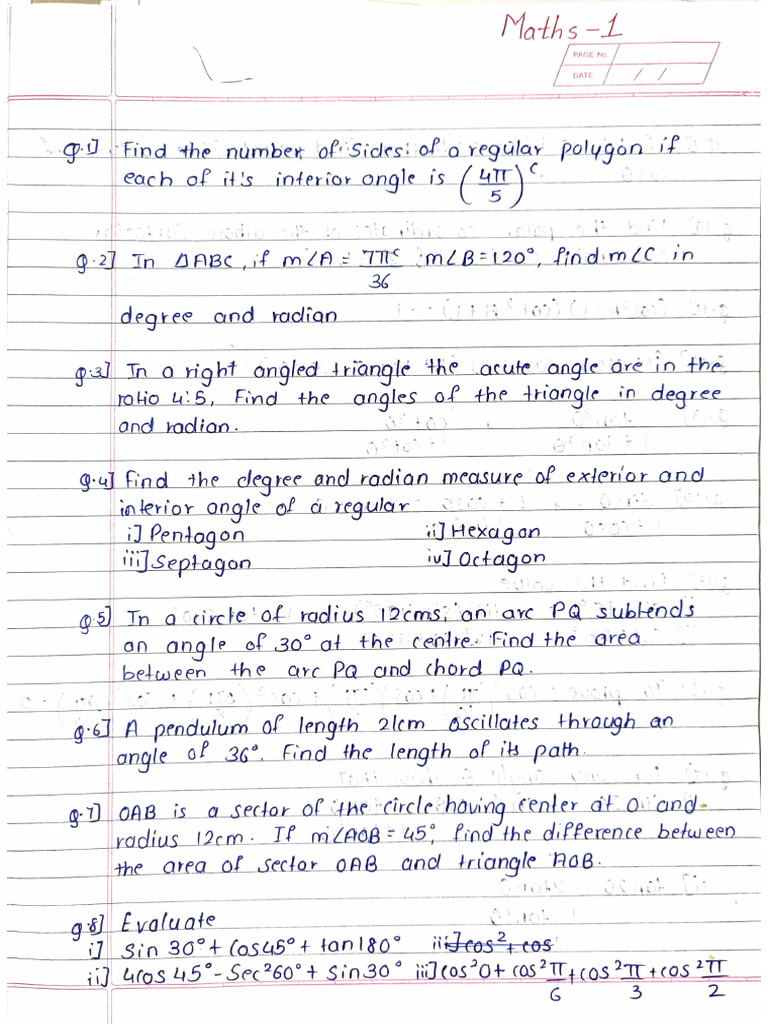 Maths-1
PAGE No.
DATE / /
Q.1] Find the number of sides of a regular polygon if
each of it's interior angle is (4π/5)ᶜ
Q.2] In ΔABC, if m∠A = 7πᶜ/36 m∠B=120°, find m∠C in
degree and radian
Q.3] In a right angled triangle the acute angle are in the
ratio 4:5, Find the angles of the triangle in degree
and radian.
Q.4] Find the degree and radian measure of exterior and
interior angle of a regular
i] Pentagon ii] Hexagon
iii] Septagon iv] Octagon
Q.5] In a circle of radius 12cms, an arc PQ subtends
an angle of 30° at the centre. Find the area
between the arc PQ and chord PQ.
Q.6] A pendulum of length 21cm oscillates through an
angle of 36°. Find the length of its path.
Q.7] OAB is a sector of the circle having center at O and
radius 12cm. If m∠AOB = 45°, find the difference between
the area of sector OAB and triangle AOB.
Q.8] Evaluate
i] Sin 30° + Cos45° + tan180° iii] cos² + cos
ii] 4cos 45° - Sec²60° + Sin30° iii] Cos²0 + cos²π/6 + cos²π/3 + cos²π/2